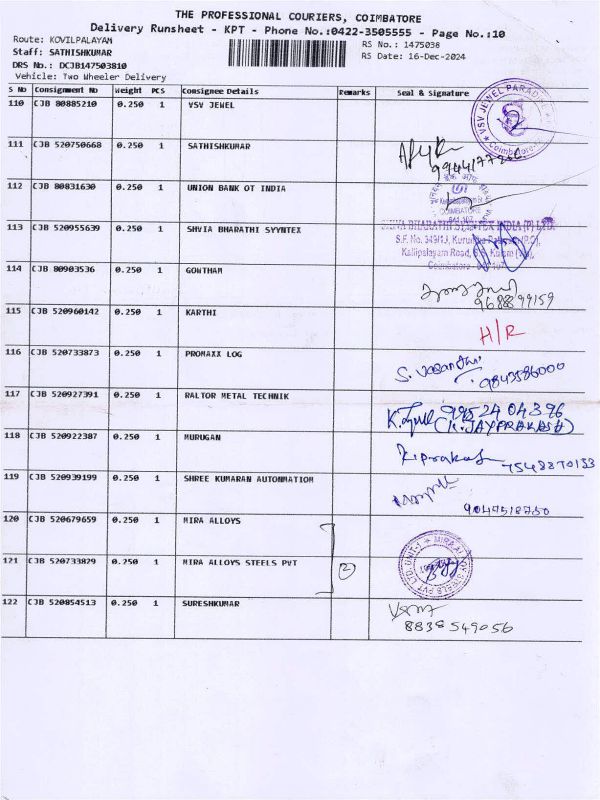 THE PROFESSIONAL COURIERS, COIMBATORE
Delivery Runsheet - KPT - Phone No.:0422-3505555 - Page No.:10
Route: KOVILPALAYAM
RS No.: 1475038
Staff: SATHISHKUMAR
RS Date: 16-Dec-2024
DRS No.: DCJB147503810
Vehicle: Two Wheeler Delivery
S No Consignment No Weight PCS Consignee Details Remarks Seal & Signature
110 CJB 80885210 0.250 1 VSV JEWEL
VSV JEWEL PARADISE Coimbatore
111 CJB 520750668 0.250 1 SATHISHKUMAR
9944177260
112 CJB 80831630 0.250 1 UNION BANK OT INDIA
COIMBATORE
113 CJB 520955639 0.250 1 SHVIA BHARATHI SYYNTEX
SHIVA BHARATHI SYNTEX INDIA (P) LTD.
S.F. No. 349/1J,
Kallipalayam Road,
Coimbatore
114 CJB 80903536 0.250 1 GONTHAM
9688899159
115 CJB 520960142 0.250 1 KARTHI
H/R
116 CJB 520733873 0.250 1 PROMAXX LOG
S. Vasanthi
9843586000
117 CJB 520927391 0.250 1 RALTOR METAL TECHNIK
99524 04396
(K. JAYPRAKASH)
118 CJB 520922387 0.250 1 MURUGAN
K.Prakash 7548870153
119 CJB 520939199 0.250 1 SHREE KUMARAN AUTONMATIOM
9047518750
120 CJB 520679659 0.250 1 MIRA ALLOYS
121 CJB 520733829 0.250 1 MIRA ALLOYS STEELS PVT
2
MIRA ALLOY STEELS PVT. LTD. UNIT-1
122 CJB 520854513 0.250 1 SURESHKUMAR
8838549056